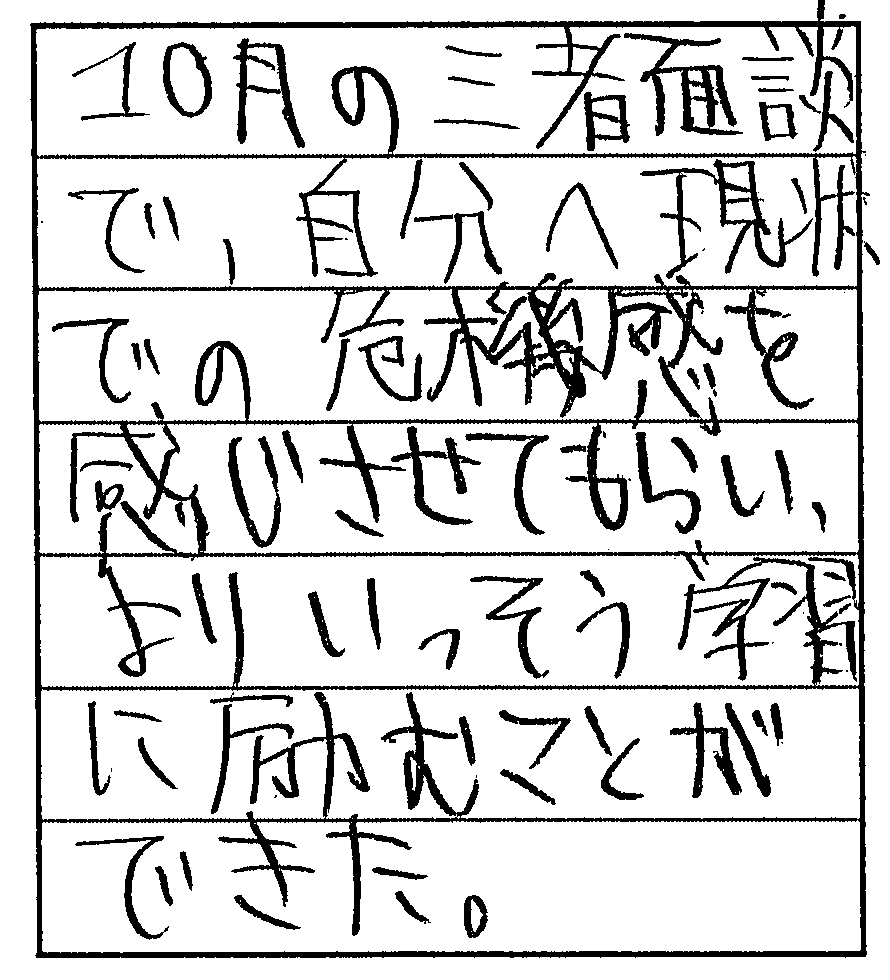 10月の三者面談
で、自分へ現状
での危機感を
感じさせてもらい、
よりいっそう学習
に励むことが
できた。